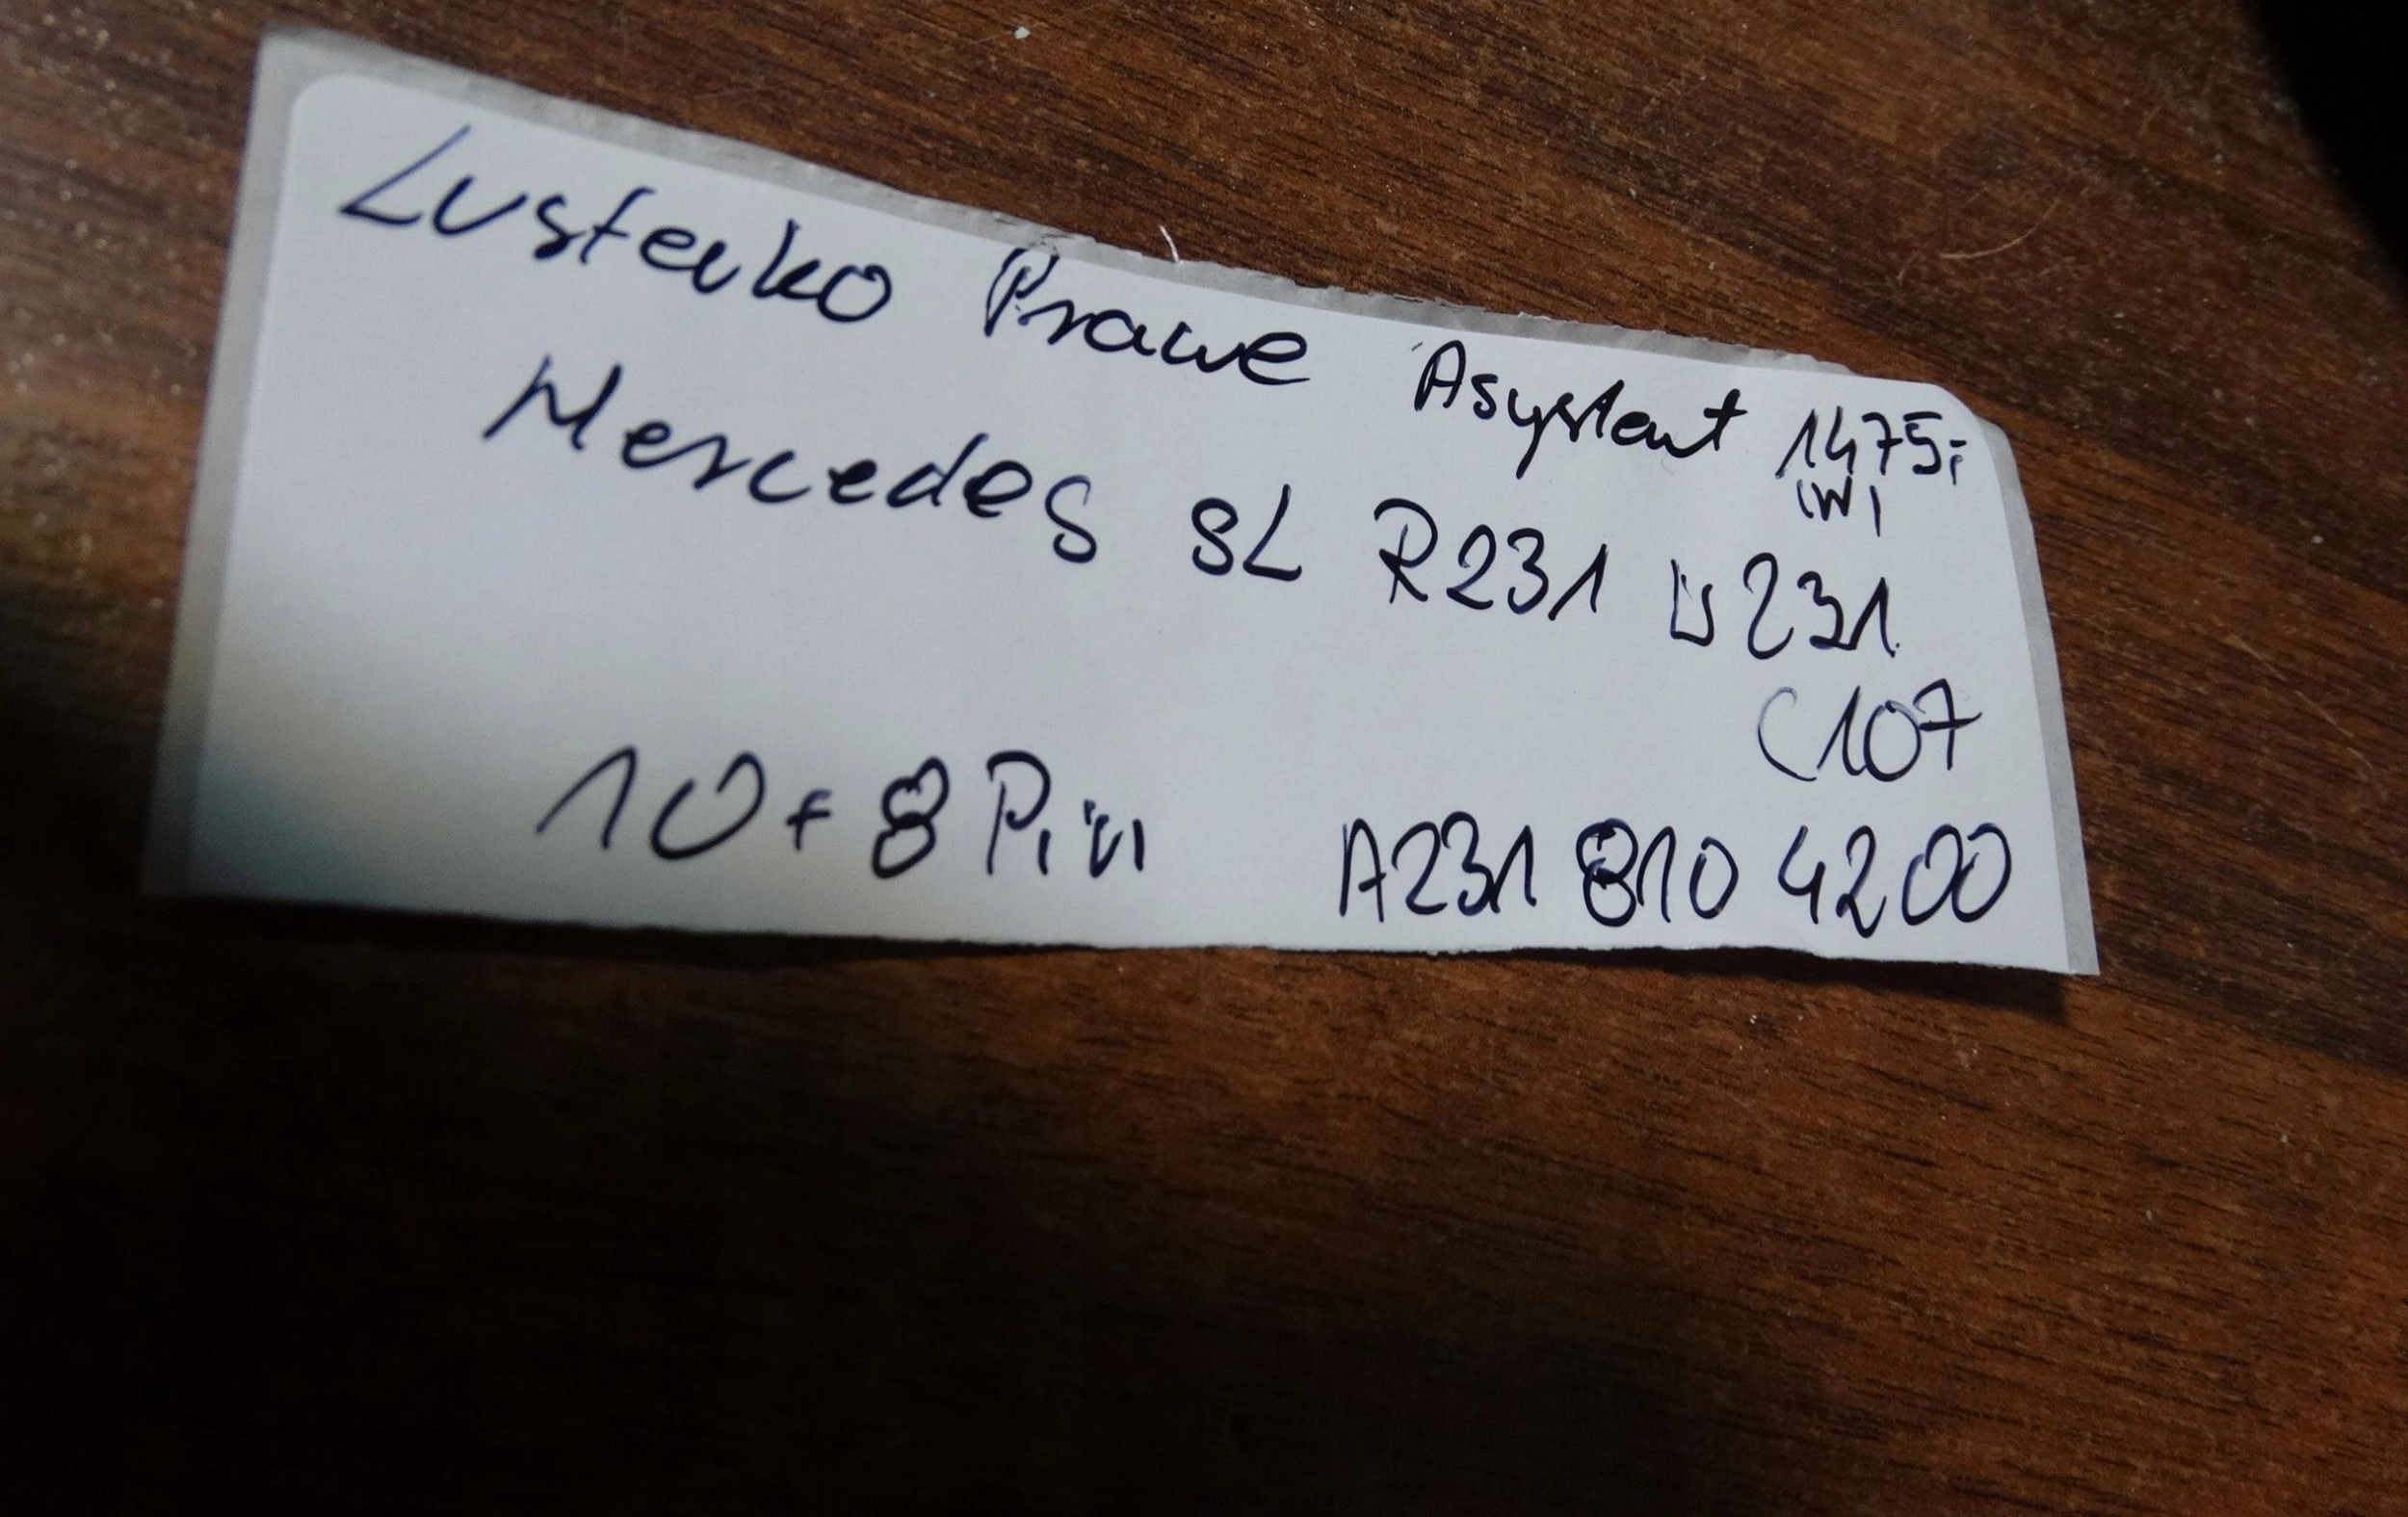 Lusterko Prawe Asystent 1475,-
(W)
Mercedes SL R231 W231
C107
10+8 Pin A231 810 4200